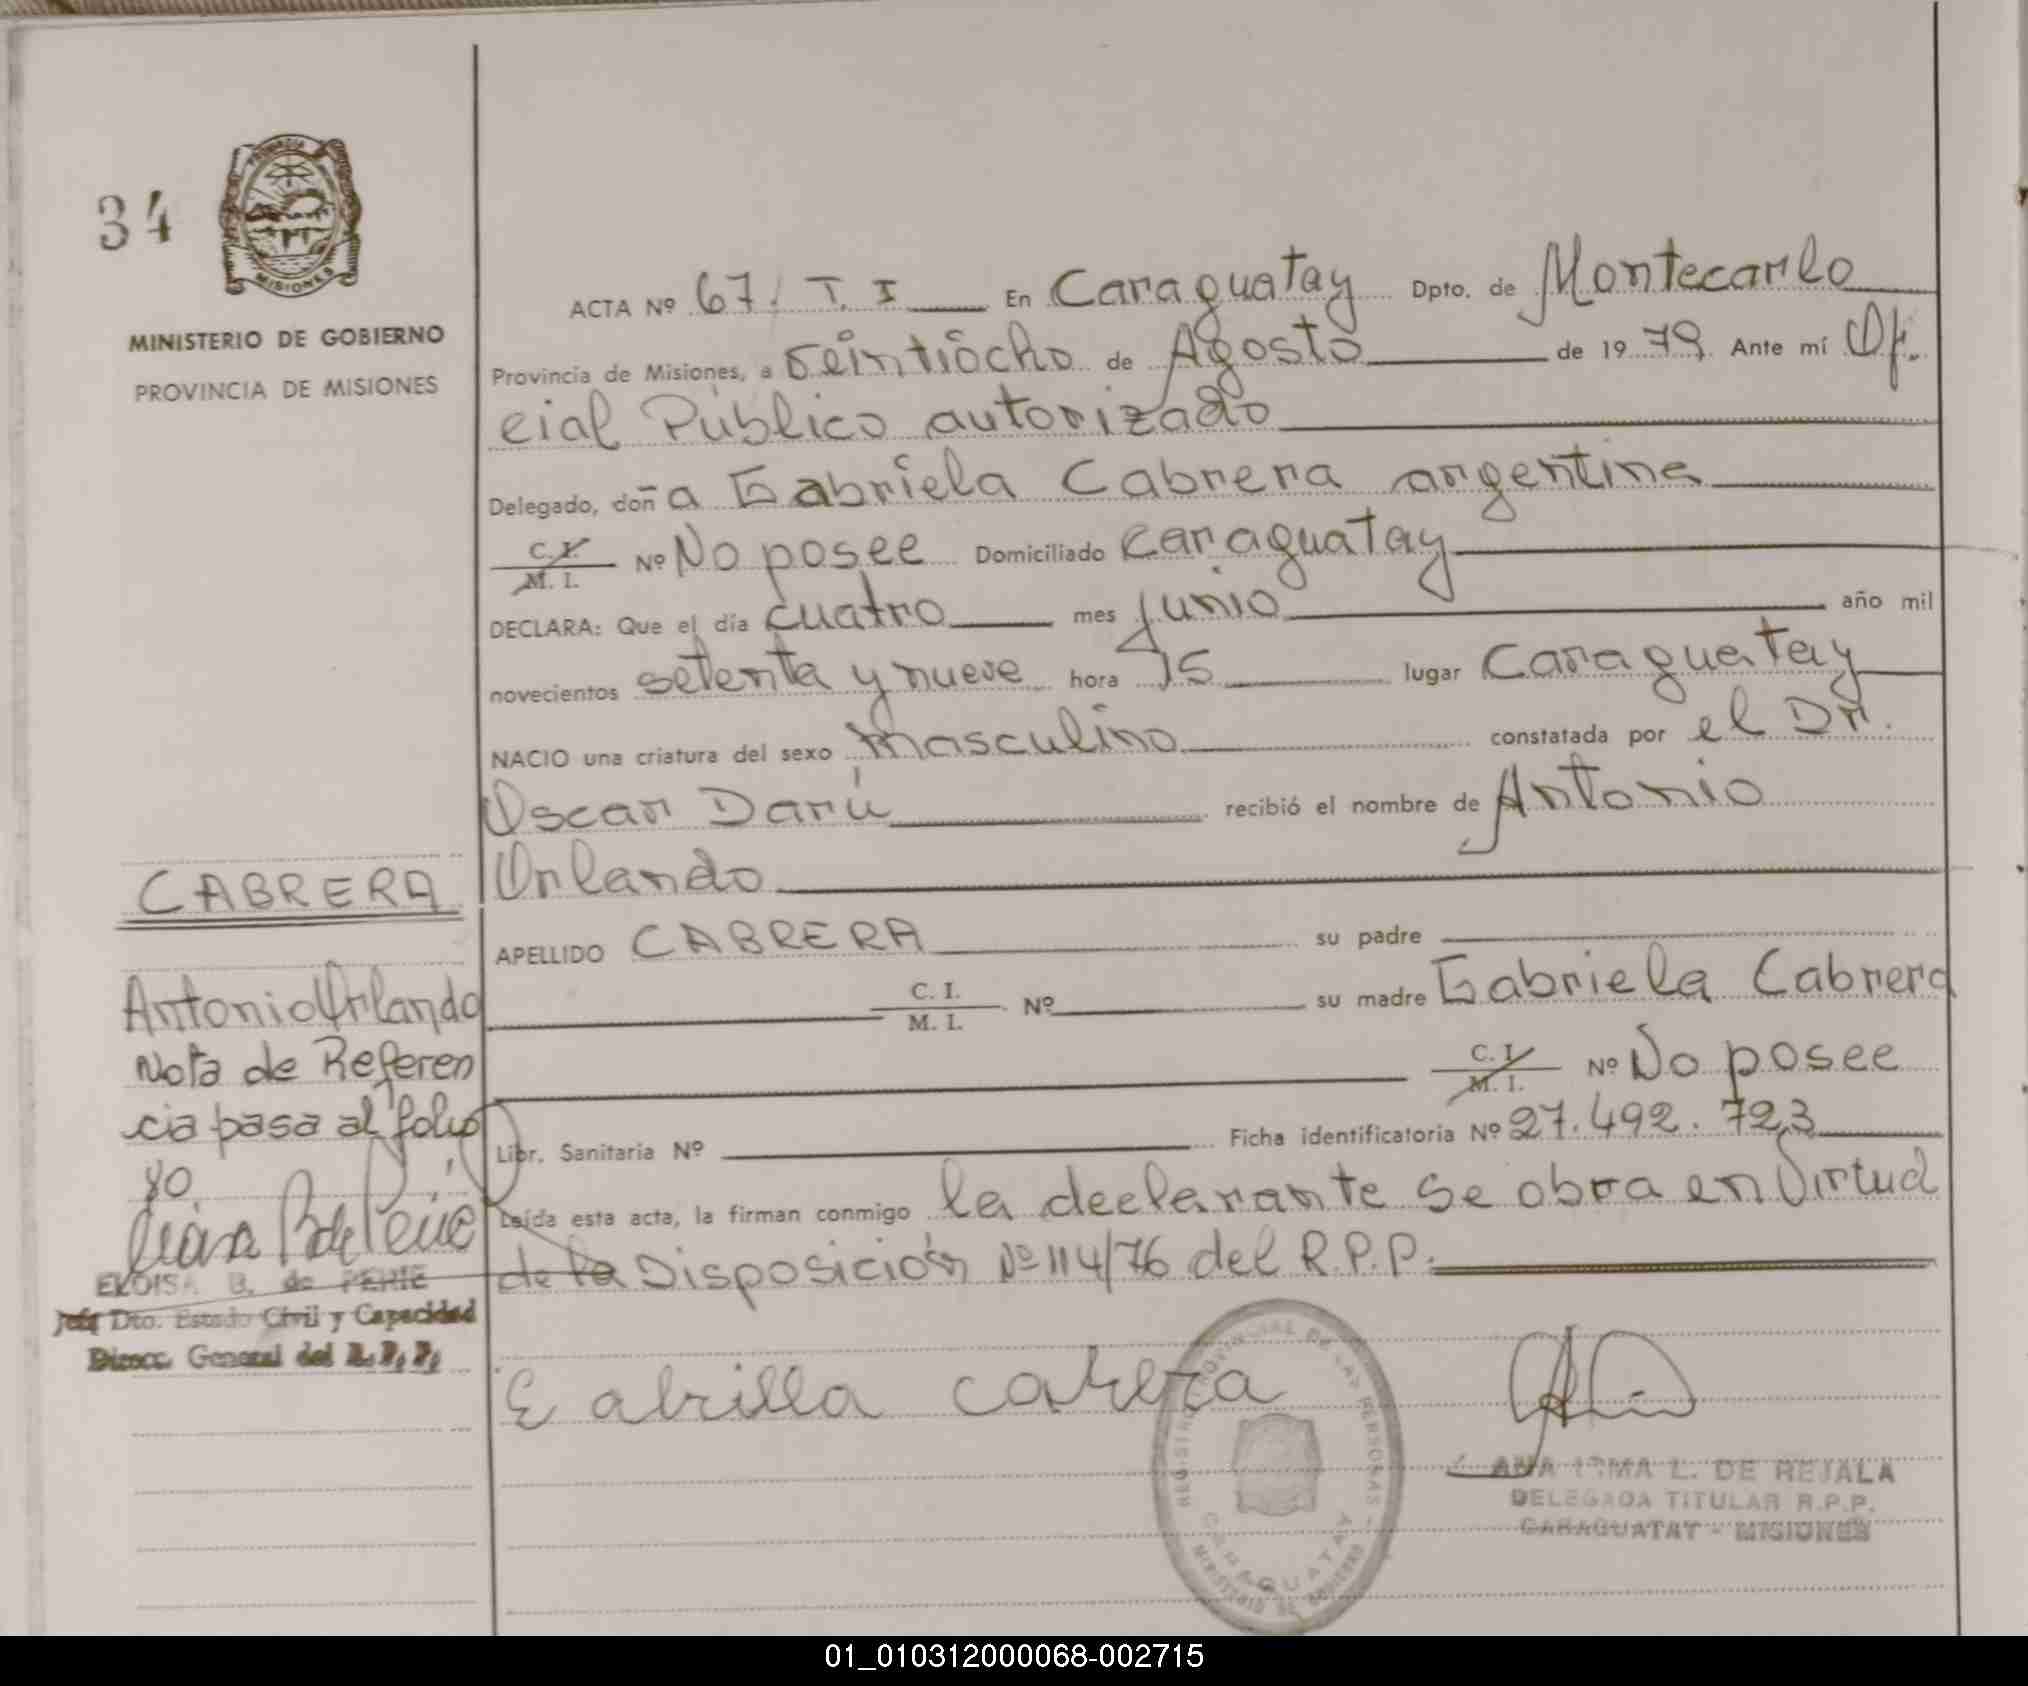 34
PROVINCIA
MISIONES
MINISTERIO DE GOBIERNO
PROVINCIA DE MISIONES
ACTA Nº 67. T. I En Caraguatay Dpto. de Montecarlo
Provincia de Misiones, a veintiocho de Agosto de 1979. Ante mí Ofi.
cial Público autorizado
Delegado, doña Gabriela Cabrera argentina
C. I. / M. I. Nº No posee Domiciliado Caraguatay
DECLARA: Que el día cuatro mes junio año mil
novecientos setenta y nueve hora 15 lugar Caraguatay
NACIO una criatura del sexo masculino constatada por el Dr.
Oscar Darú recibió el nombre de Antonio
Orlando
APELLIDO CABRERA su padre
C. I. / M. I. Nº su madre Gabriela Cabrera
C. I. / M. I. Nº No posee
Libr. Sanitaria Nº Ficha identificatoria Nº 27.492.723
Leída esta acta, la firman conmigo la declarante se obra en Virtud
de la Disposición Nº 114/76 del R.P.P.
CABRERA
Antonio Orlando
Nota de Referen
cia pasa al folio
80
ELOISA B. de PEHIE
Jefe Dto. Estado Civil y Capacidad
Direcc. General del R. P. P.
Gabrilla cabrera
REGISTRO PROVINCIAL DE LAS PERSONAS
CARAGUATAY
MINISTERIO DE GOBIERNO
ANA IRMA L. DE REJALA
DELEGADA TITULAR R.P.P.
CARAGUATAY - MISIONES
01_010312000068-002715